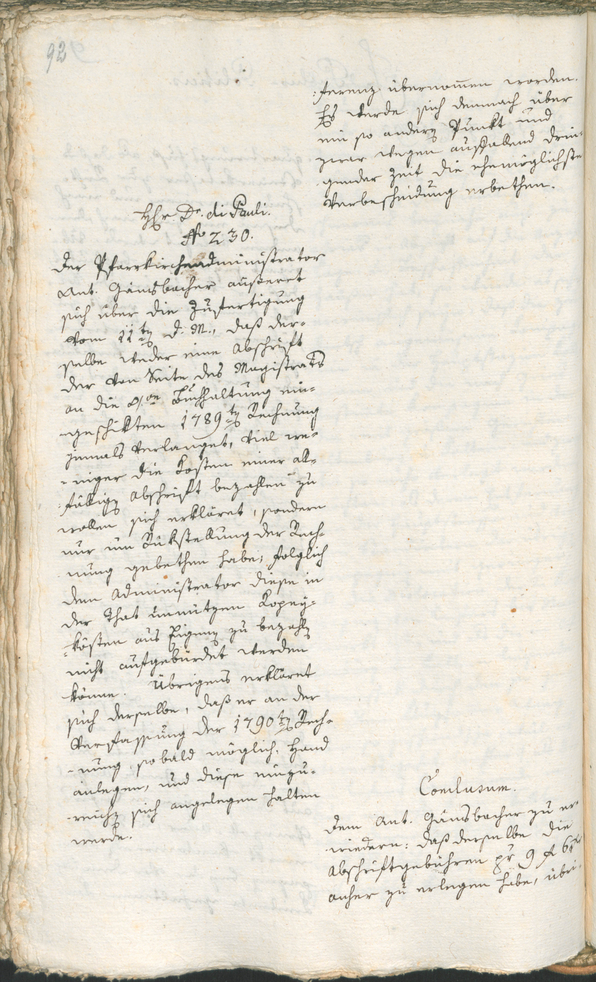 92
H(err) Dr. di Pauli.
No 230.
Der Pfarrkirchenadministrator
Ant. Gänsbacher äußeret
sich über die Zufertigung
vom 11ten d. M., daß der-
selbe weder eine Abschrift
der von Seite des Magistrats
an die Buchhaltung ein-
geschikten 1789ten Rechnung
jemals verlanget, viel we-
niger die Kösten einer all-
fälligen Abschrift bezahlen zu
wollen sich erkläret, sondern
nur um Rükstellung der Rech-
nung gebethen habe; folglich
dem Administrator diese in
der That unnützen Kopey-
kösten aus Eignem zu bezahlen
nicht aufgebürdet werden
könne. Übrigens erkläret
sich derselbe, daß er an der
Verfassung der 1790ten Rech-
nung sobald möglich, Hand
anlegen, und diese einzu-
reichen sich angelegen halten
werde.
ferenz übernommen worden.
Es werde sich demnach über
ein so andern Punkt und
zwar wegen auffallend drin-
gender Zeit die ehemöglichste
Verbescheidung erbethen.
Conclusum.
Dem Ant. Gänsbacher zu er-
wiedern: daß derselbe die
Abschriftgebühren pr 9 f 6 x
anher zu erlegen habe, übri-